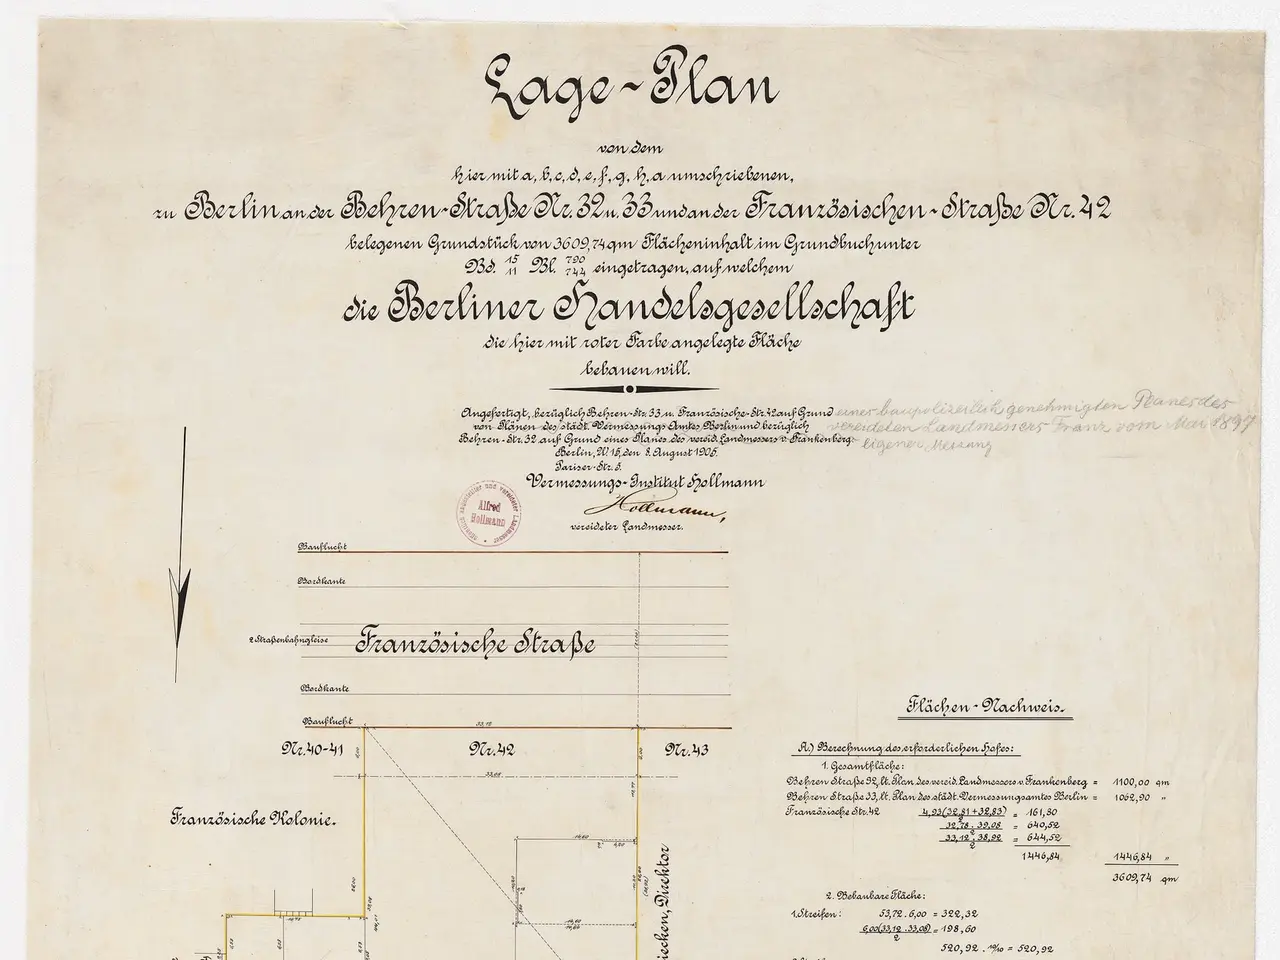 Lage-Plan
von dem
hier mit a, b, c, d, e, f, g, h, a umschriebenen,
zu Berlin an der Behren-Straße Nr. 32 u. 33 und an der Französischen-Straße Nr. 42
belegenen Grundstück von 3609,74 qm Flächeninhalt im Grundbuch unter
Bd. 15/11 Bl. 790/744 eingetragen, auf welchem
die Berliner Handelsgesellschaft
die hier mit roter Farbe angelegte Fläche
bebauen will.
Angefertigt, bezüglich Behren-Str. 33 u. Französische-Str. 42 auf Grund eines baupolizeilich genehmigten Planes des
von Plänen des städt. Vermessungs Amtes Berlin und bezüglich vereideten Landmessers Franz vom Mai 1897
Behren-Str. 32 auf Grund eines Planes des vereid. Landmessers v. Frankenberg. eigener Messung
Berlin, W. 15, den 8. August 1905.
Pariser-Str. 5.
Vermessungs-Institut Hollmann
Hollmann,
vereideter Landmesser.
Alfred
Hollmann
Bauflucht
Bordkante
2 Straßenbahngleise
Französische Straße
Bordkante
Bauflucht
33,12
Nr. 40-41
Nr. 42
Nr. 43
33,08
Französische Kolonie.
Direktor
Flächen-Nachweis.
A.) Berechnung des erforderlichen Hofes:
1. Gesamtfläche:
Behren Straße 32, lt. Plan des vereid. Landmessers v. Frankenberg = 1100,00 qm
Behren Straße 33, lt. Plan des städt. Vermessungsamtes Berlin = 1062,90 "
Französische Str. 42 4,93(32,81+32,83)/2 = 161,80
32,78 . 39,08/2 = 640,52
33,12 . 38,92/2 = 644,52
1446,84 1446,84 "
3609,74 qm
2. Bebaubare Fläche:
1. Streifen: 53,72 . 6,00 = 322,32
6,00(33,12 . 33,08)/2 = 198,60
520,92 . 10/10 = 520,92